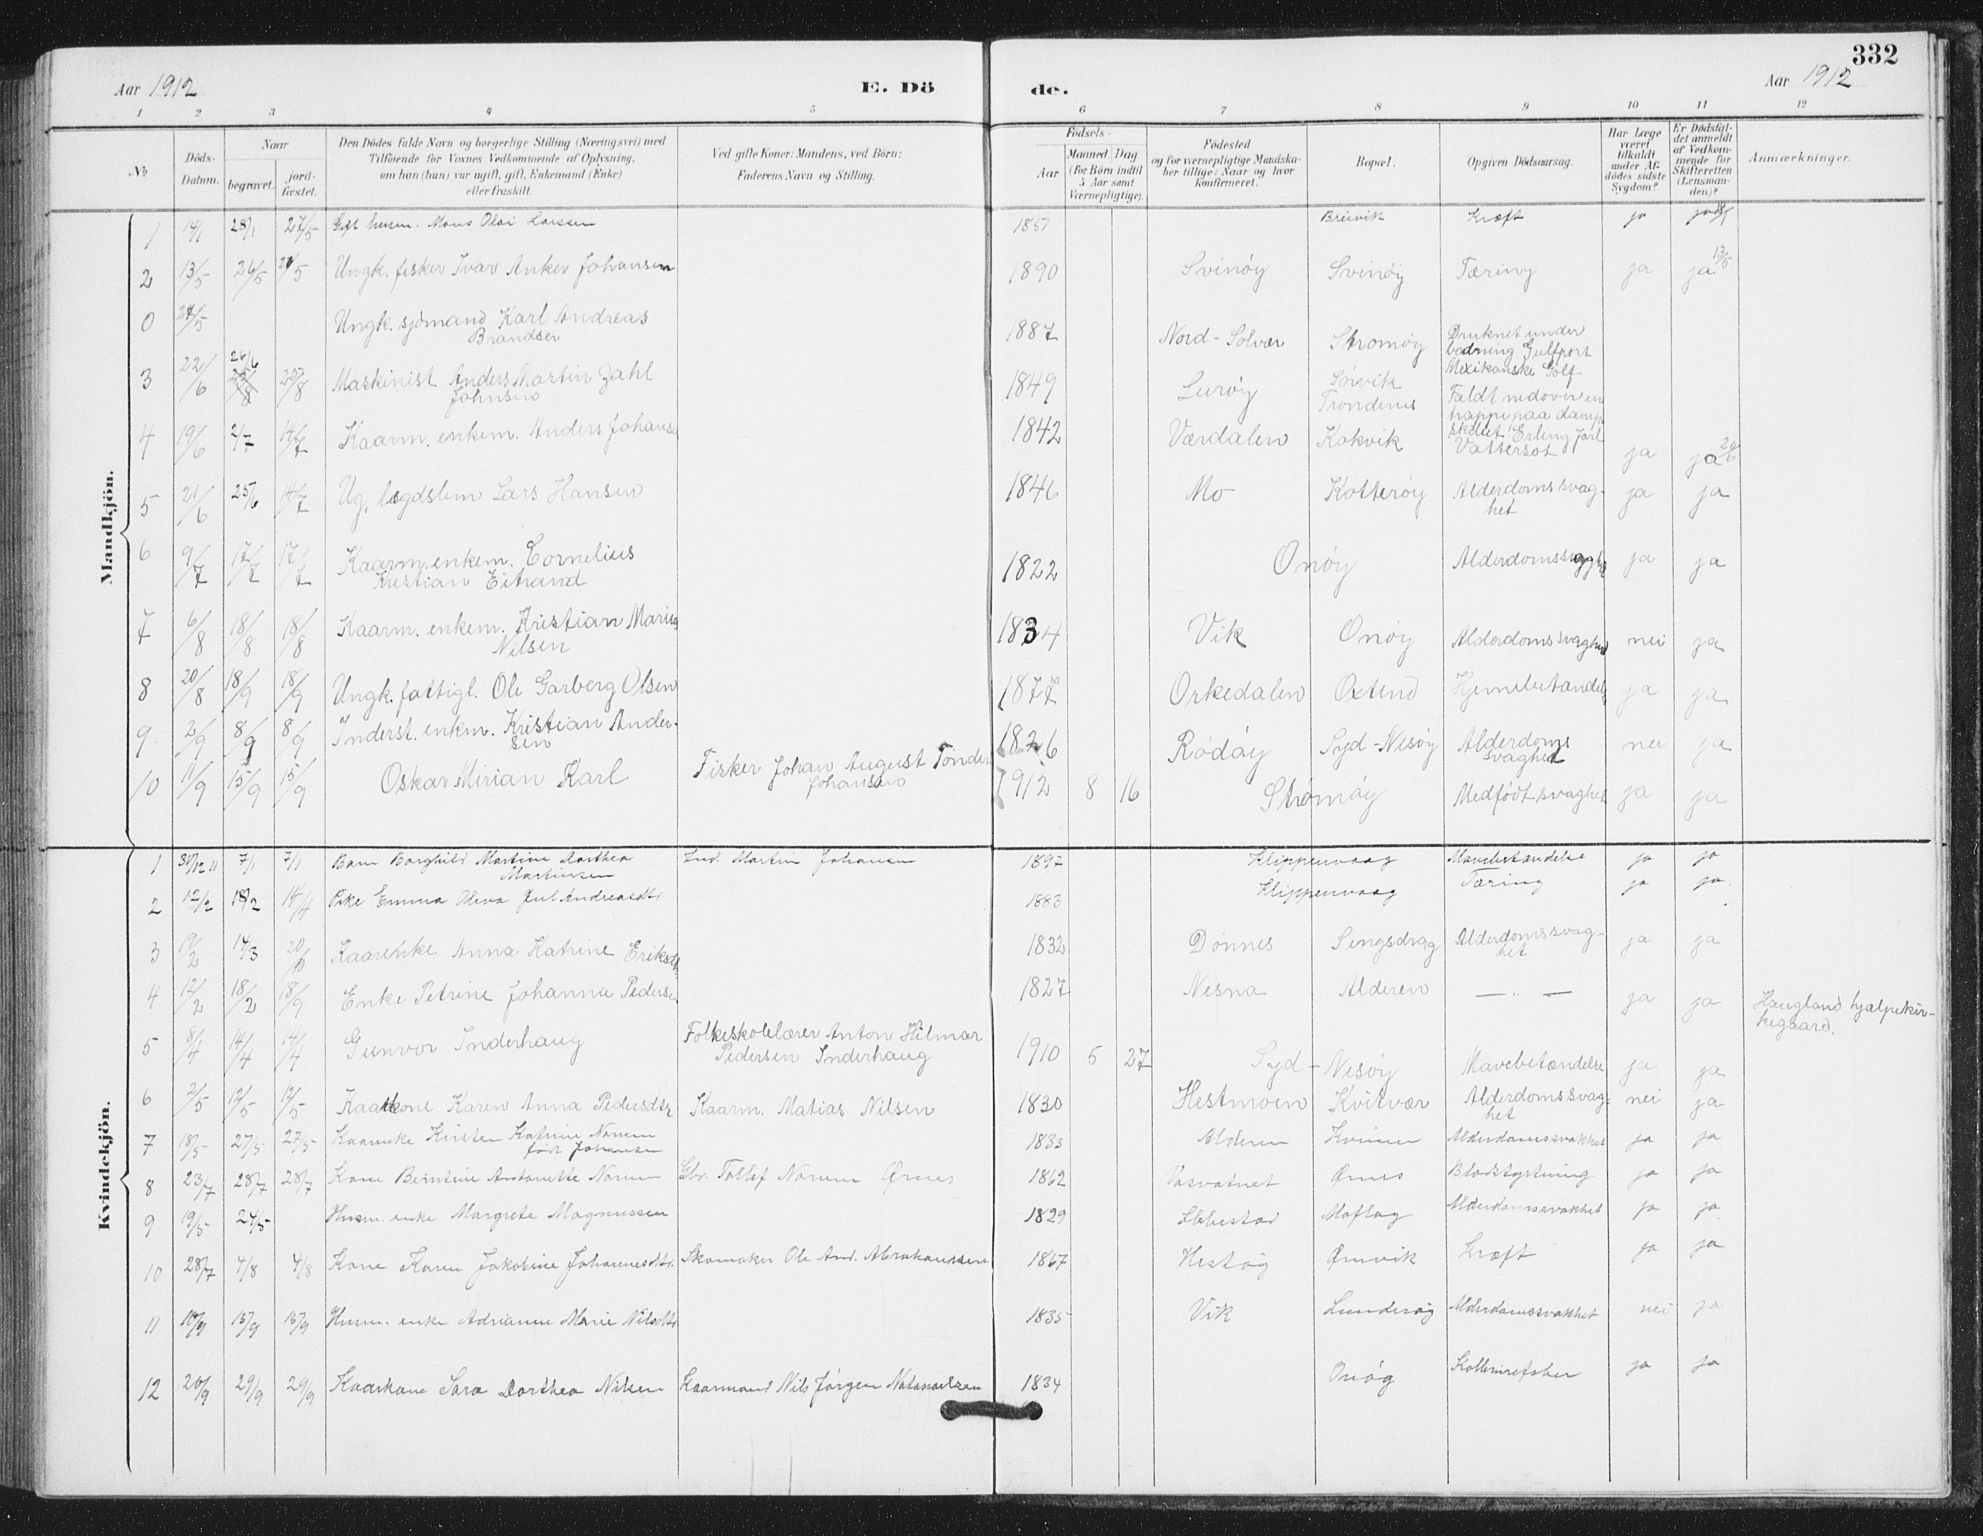 332
Aar 1912 E. Dö de. Aar 1912
1 2 3 4 5 6 7 8 9 10 11 12
№
Döds-Datum.
Naar
begravet.
jord-fæstet.
Den Dödes fulde Navn og borgerlige Stilling (Næringsvei) med
Tilföiende for Voxnes Vedkommende af Oplysning,
om han (hun) var ugift, gift, Enkemand (Enke)
eller fraskilt.
Ved gifte Koner: Mandens, ved Börn:
Faderens Navn og Stilling.
Födsels-
Aar
Maaned Dag
(for Börn indtil
5 Aar samt
Værnepligtige)
Födested
og for værnepligtige Mandska-
ber tillige: Naar og hvor
konfirmeret.
Bopæl.
Opgiven Dödsaarsag.
Har Læge
været
tilkaldt
under Af-
dödes sidste
Sygdom?
Er Dödsfal-
det anmeldt
af Vedkom-
mende for
Skifteretten
(Lensman-
den)?
Anmærkninger.
Mandkjön.
1 14/1 28/1 27/5 Gift husm. Mons Olai Larssen 1857 Breivik Kræft ja ja
2 13/5 26/5 26/5 Ungk. fisker Ivar Anker Johansen 1890 Svinöy Svinöy Tæring ja ja 13/5
0 24/5 Ungk. sjömand Karl Andreas
Brandser 1887 Nord-Solvær Stromöy Druknet under
badning Gulfport
Mexikanske Golf
3 22/6 26/6 25/8 Maskinist Anders Martin Zahl
Johnsen 1849 Luröy Sörvik
Trondenes Faldt nedover en
trappe paa damp
skibet Erling Jarl
4 19/6 2/7 14/7 Kaarm. enkem. Anders Johanse 1842 Værdalen Kokvik Vattersot ja ja 20/6
5 21/6 25/6 14/7 Ug. lægdslem Lars Hansen 1846 Mo Kotteröy Alderdomssvag-
het ja ja
6 9/7 17/7 17/7 Kaarm. enkem. Cornelius
Kristian Eitrand 1822 Onöy Alderdomssvaghet ja ja
7 6/8 18/8 18/8 Kaarm. enkem. Kristian Marius
Nilsen 1834 Vik Onöy Alderdomssvaghed nei ja
8 20/8 18/9 18/9 Ungk. fattigl. Ole Garberg Olsen 1877 Orkedalen Oxtind Hjernebetændels ja ja
9 2/9 8/9 8/9 Inderst. enkm. Kristian Ander-
sen 1826 Rödöy Syd-Nesöy Alderdoms
svaghed nei ja
10 11/9 15/9 15/9 Oskar Mirian Karl Fisker Johan August Tönder
Johansen 1912 8 16 Strömöy Medfödt svaghet ja ja
Kvindekjön.
1 30/12 11 7/1 7/1 Barn Borghild Martine Dorthea
Martinsen Ind. Martin Johansen 1897 Klippenvaag Mavebetændelse ja ja
2 12/2 18/2 14/4 Pike Emma Oleva Jul Andreasdtr. 1883 Klippenvaag Tæring ja ja.
3 19/2 14/3 20/10 Kaarenke Anna Katrine Eriksdt 1832 Dönnes Sengsdrag Alderdomssvag-
het ja ja
4 12/2 18/2 18/9 Enke Petrine Johanna Pederse 1827 Nesna Alderen — „ — ja ja Haugland hjælpekir-
kegaard.
5 8/4 14/4 14/4 Gunvor Inderhaug Folkeskolelærer Anton Hilmar
Pedersen Inderhaug 1910 5 27 Syd-Nesöy Mavebetændelse ja ja
6 2/5 19/5 19/5 Kaarkone Karen Anna Pedersdtr Kaarm. Matias Nilsen 1830 Hestmoen Kvitvær Alderdomssvag-
het nei ja
7 18/5 27/5 27/5 Kaarenke Kirsten Katrine Norum
född Johansen 1833 Alderen Kvinner Alderdomssvakhet ja ja
8 23/7 28/7 28/7 Kone Berntine Antonette Norum Gbr. Tollef Norum Ørnes 1862 Vasvatnet Ørnes Blodstyrtning ja ja
9 19/5 24/5 Husm. enke Margrete Magnussen 1829 Ibbestad Moflag Alderdomssvakhet ja ja
10 28/7 4/8 4/8 Kone Karen Jakobine Johannesdtr. Skomaker Ole And. Abrahamsen 1867 Hestöy Ørnvik Kræft ja ja
11 10/9 15/9 15/9 Husm. enke Adrianne Marie Nilsdtr 1835 Vik Lunderöy Alderdomssvakhet nei ja
12 20/9 29/9 29/9 Kaarkone Sara Dorthea Nilsen Kaarmand Nils Jörgen Natanaelsen 1834 Onöy ja ja